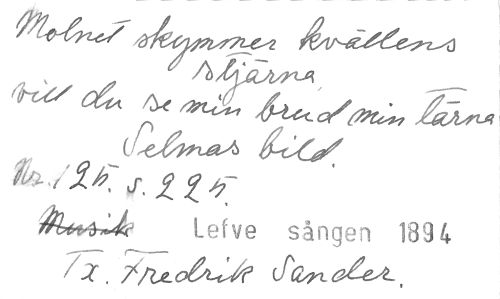 Molnet skymmer kvällens
stjärna,
vill du se min brud min tärna
Selmas bild.
Nr. 125. s. 225.
Musik Lefve sången 1894
Tx. Fredrik Sander.